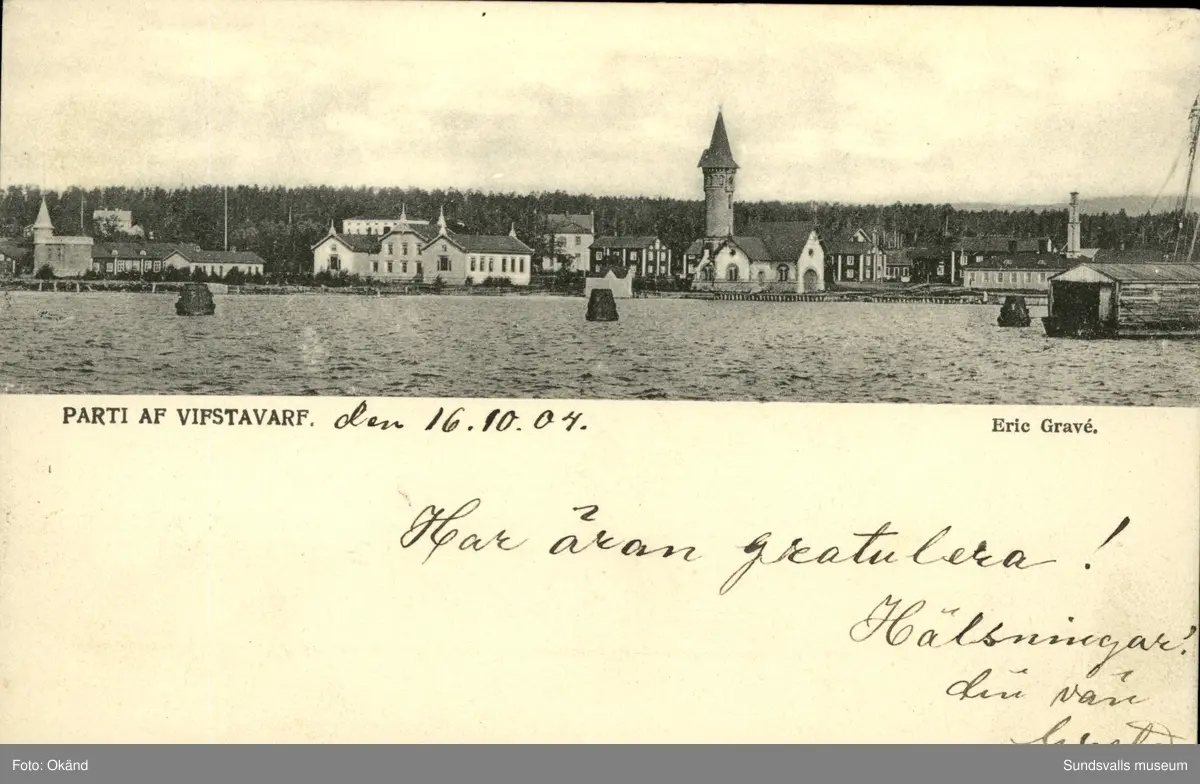 PARTI AF VIFSTAVARF. den 16.10.04.
Eric Gravé.
Har äran gratulera!
Hälsningar!
din vän
Foto: Okänd
Sundsvalls museum